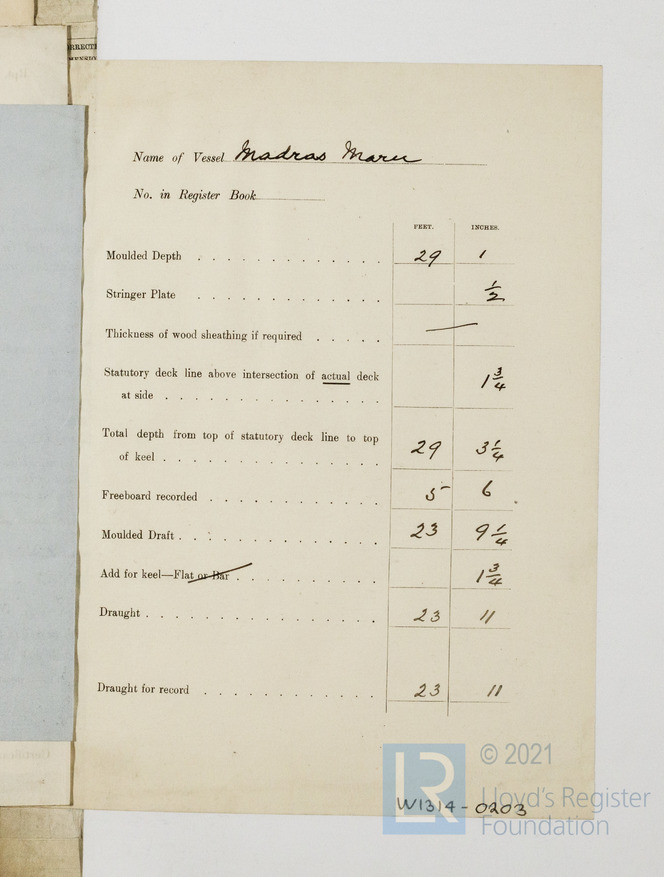 Name of Vessel Madras Maru
No. in Register Book
FEET. INCHES.
Moulded Depth . . . . . . . . . . . . . 29 1
Stringer Plate . . . . . . . . . . . . . ½
Thickness of wood sheathing if required . . . . . —
Statutory deck line above intersection of actual deck 1¾
at side . . . . . . . . . . . . . . .
Total depth from top of statutory deck line to top
of keel . . . . . . . . . . . . . . . 29 3¼
Freeboard recorded . . . . . . . . . . . . 5 6
Moulded Draft . . . . . . . . . . . . . . 23 9¼
Add for keel—Flat or Bar . . . . . . . . . . 1¾
Draught . . . . . . . . . . . . . . . . 23 11
Draught for record . . . . . . . . . . . . 23 11
LR
© 2021
Lloyd's Register
Foundation
W1314-0203